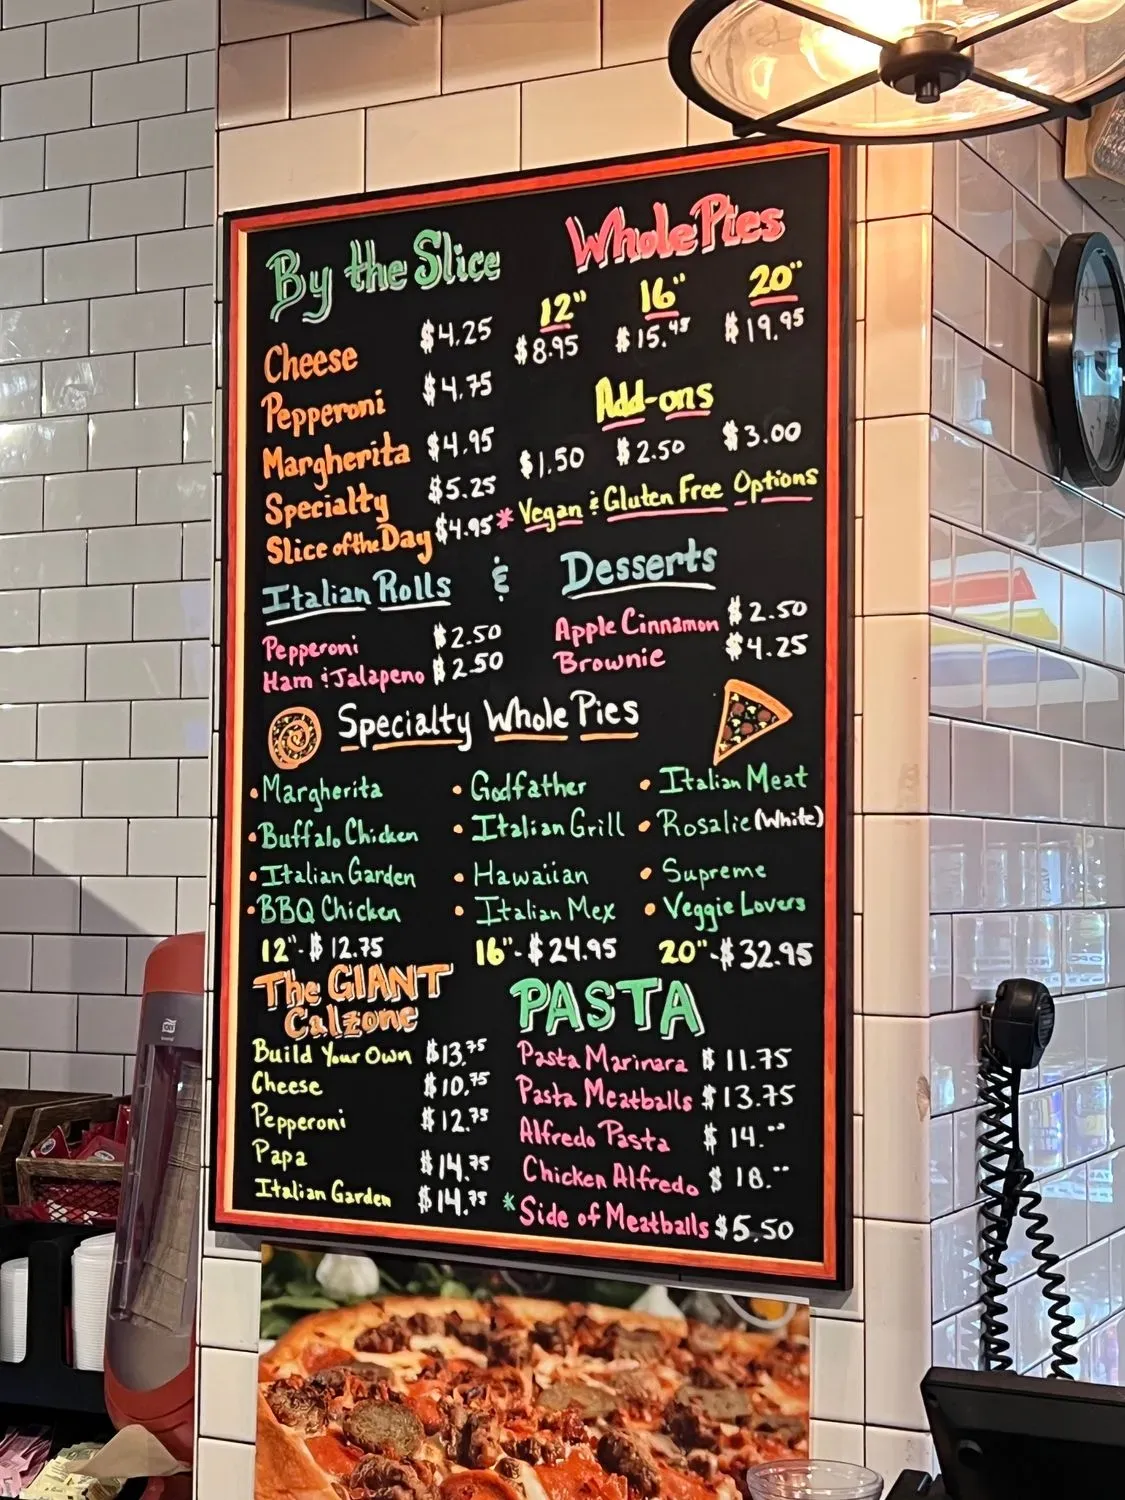 By the Slice
Cheese $4.25
Pepperoni $4.75
Margherita $4.95
Specialty $5.25
Slice of the Day $4.95
Whole Pies
12" 16" 20"
$8.95 $15.45 $19.95
Add-ons
$1.50 $2.50 $3.00
* Vegan & Gluten Free Options
Italian Rolls & Desserts
Pepperoni $2.50
Ham & Jalapeno $2.50
Apple Cinnamon $2.50
Brownie $4.25
Specialty Whole Pies
• Margherita • Godfather • Italian Meat
• Buffalo Chicken • Italian Grill • Rosalie (White)
• Italian Garden • Hawaiian • Supreme
• BBQ Chicken • Italian Mex • Veggie Lovers
12"-$12.75 16"-$24.95 20"-$32.95
The GIANT
Calzone
Build Your Own $13.75
Cheese $10.75
Pepperoni $12.75
Papa $14.75
Italian Garden $14.75
PASTA
Pasta Marinara $11.75
Pasta Meatballs $13.75
Alfredo Pasta $14.--
Chicken Alfredo $18.--
* Side of Meatballs $5.50